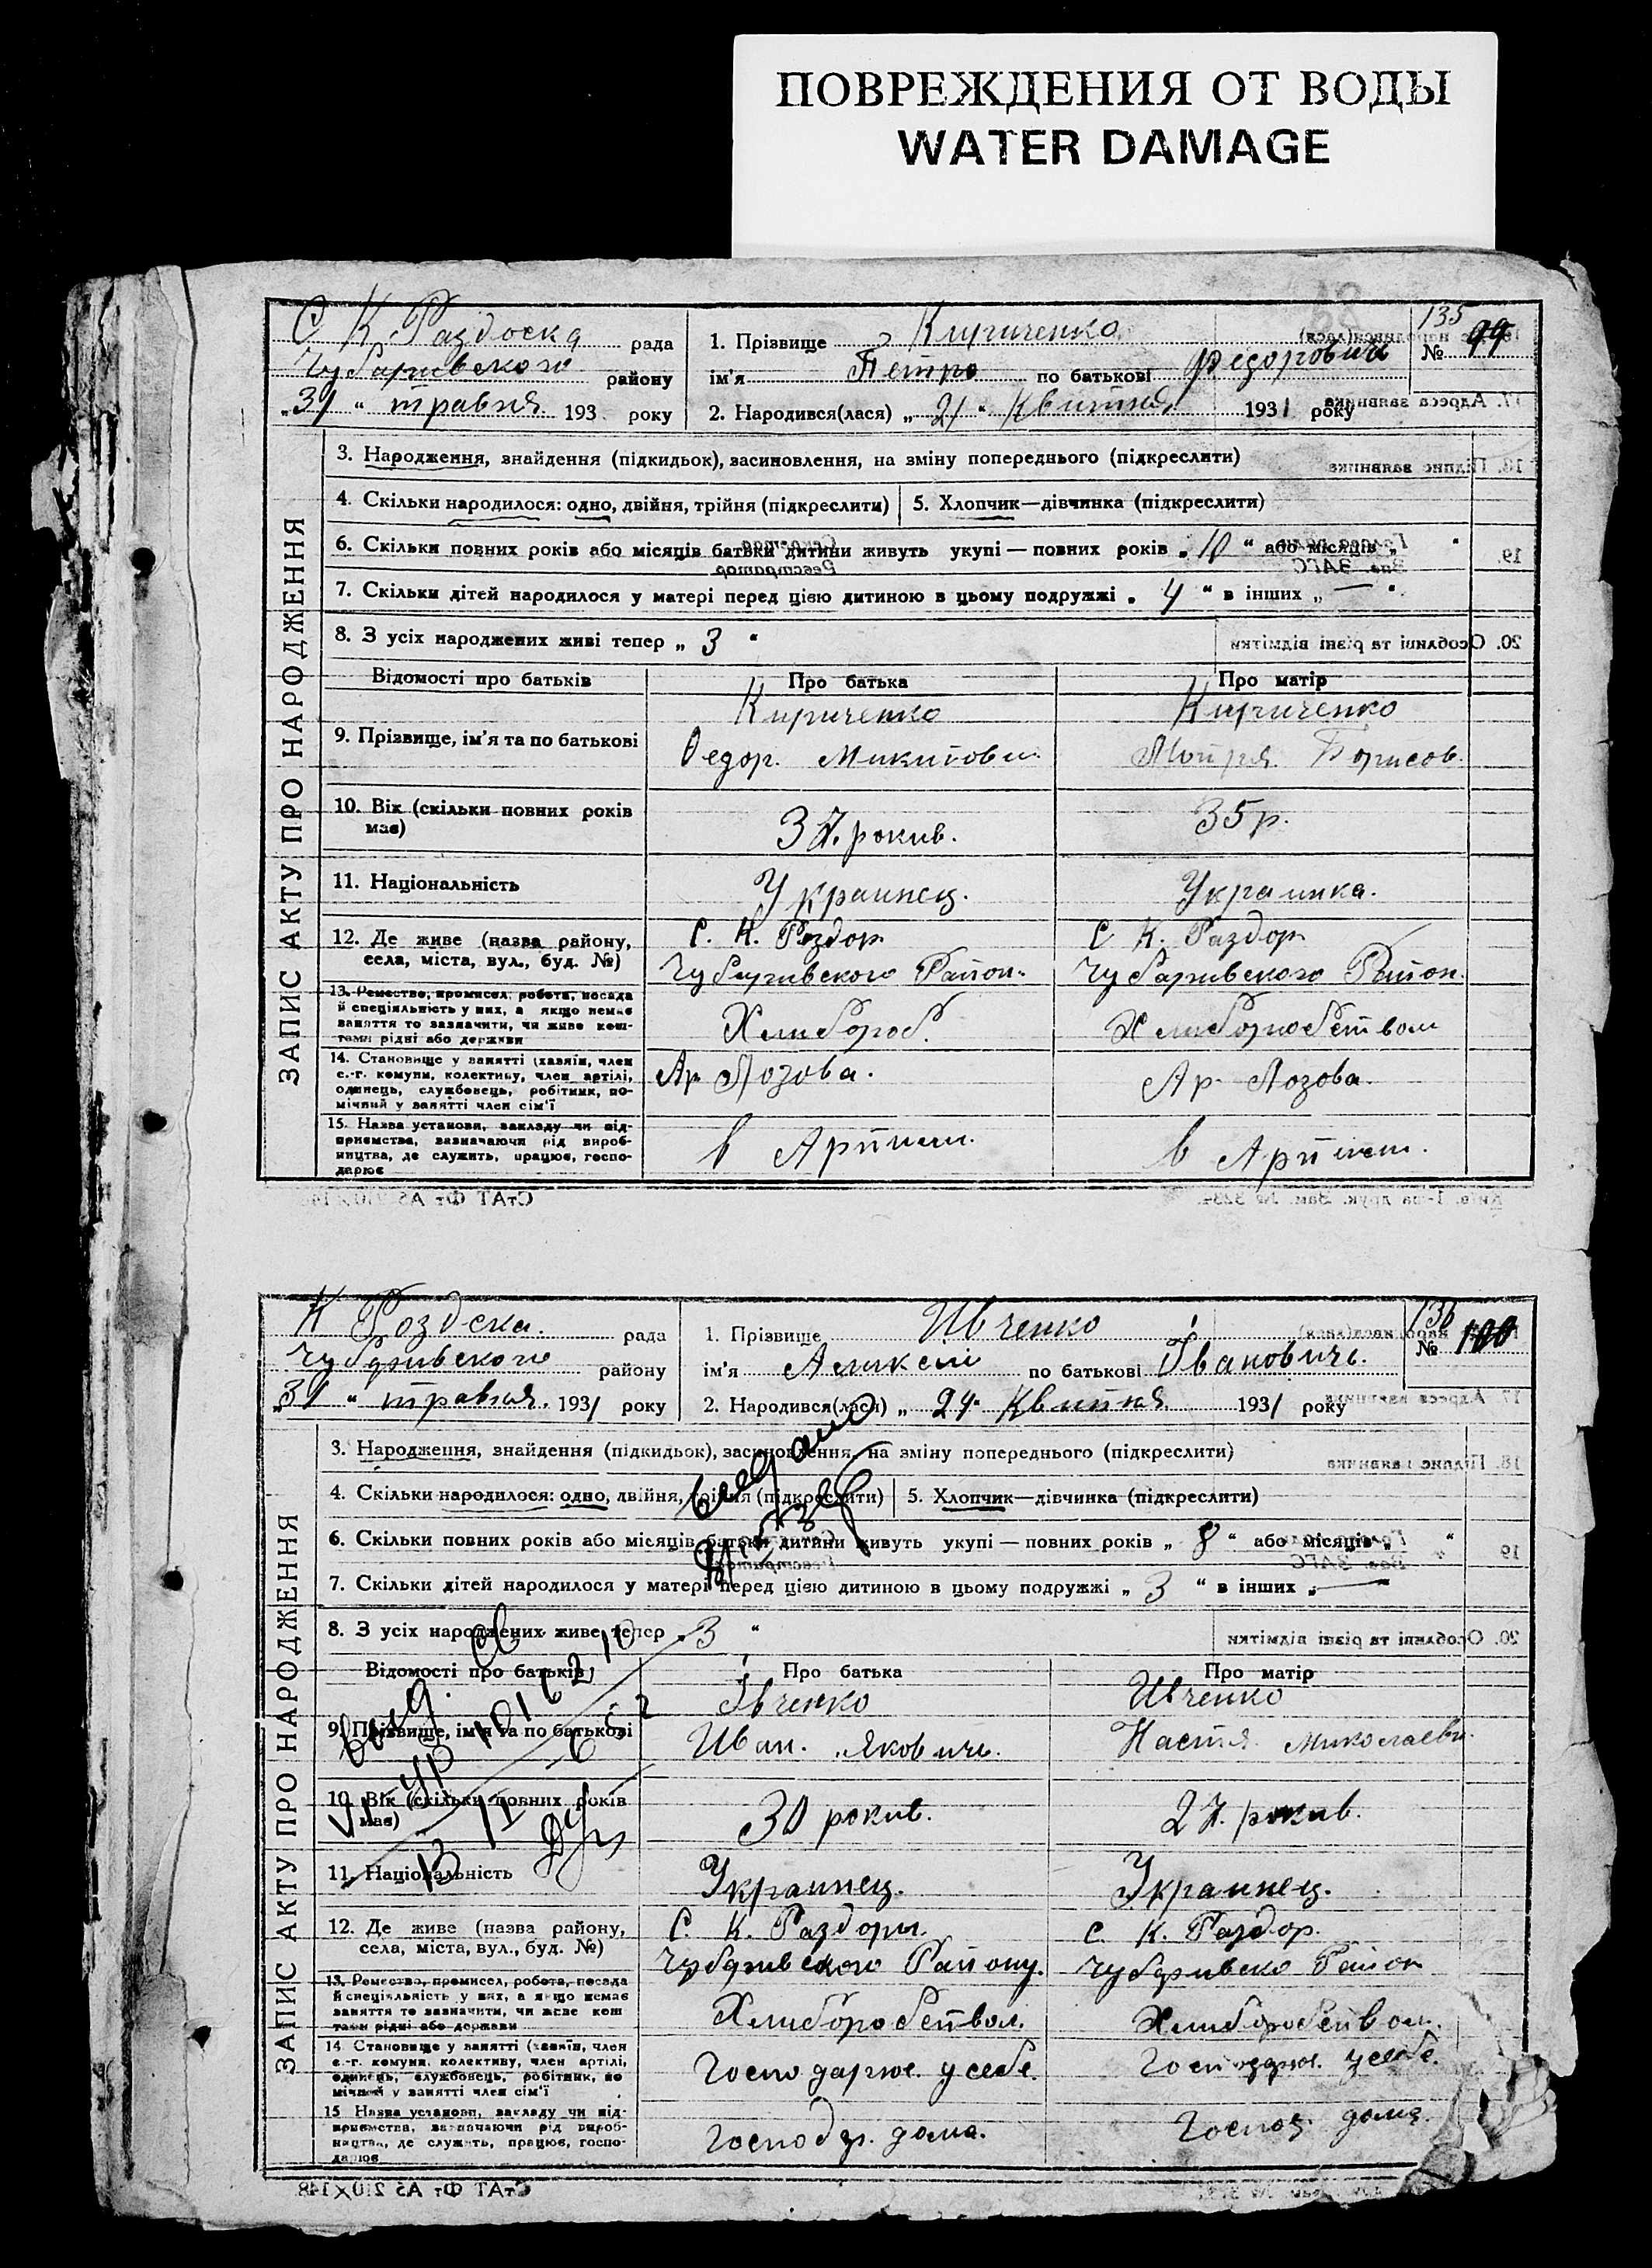 ПОВРЕЖДЕНИЯ ОТ ВОДЫ
WATER DAMAGE
С К. Раздоска рада
Чубаривского району
„31 “ травня 193 року
1. Прізвище Кириченко
ім'я Петро по батькові Федорович
2. Народився(лася) „ 21 “ Квитня 1931 року
135
№ 99
ЗАПИС АКТУ ПРО НАРОДЖЕННЯ
3. Народження, знайдення (підкидьок), засиновлення, на зміну попереднього (підкреслити)
4. Скільки народилося: одно, двійня, трійня (підкреслити) 5. Хлопчик—дівчинка (підкреслити)
6. Скільки повних років або місяців батьки дитини живуть укупі — повних років „ 10 “ або місяців „ “
7. Скільки дітей народилося у матері перед цією дитиною в цьому подружжі „ 4 “ в інших „ — “
8. З усіх народжених живі тепер „ 3 “
Відомості про батьків Про батька Про матір
9. Прізвище, ім'я та по батькові
Кириченко
Федор. Микитович
Кириченко
Борисов.
10. Вік (скільки повних років має)
37. рокив.
35 р.
11. Національність
Украинец.
Украинка.
12. Де живе (назва району, села, міста, вул., буд. №)
С. К. Раздор
Чубаривского Район.
С К. Раздор
Чубаривского Район.
13. Ремество, промисел, робота, посада й спеціяльність у них, а якщо немає заняття то зазначити, чи живе коштами рідні або держави
Хлибороб.
Хлиборобством
14. Становище у занятті (хазяїн, член с.-г. комуни, колективу, член артілі, одинець, службовець, робітник, помічний у занятті член сім'ї
Ар Лозова.
Ар. Лозова.
15. Назва установи, закладу чи підприємства, зазначаючи рід виробництва, де служить, працює, господарює
в Артили.
в Артили.
К Розд-ска. рада
Чубаривского району
„31 “ травня. 1931 року
1. Прізвище Ивченко
ім'я Аликсій по батькові Іванович.
2. Народився(лася) „ 24 “ Квитня 1931 року
136
№ 100
ЗАПИС АКТУ ПРО НАРОДЖЕННЯ
3. Народження, знайдення (підкидьок), засиновлення, на зміну попереднього (підкреслити)
4. Скільки народилося: одно, двійня, трійня (підкреслити) 5. Хлопчик—дівчинка (підкреслити)
6. Скільки повних років або місяців батьки дитини живуть укупі — повних років „ 8 “ або місяців „ “
7. Скільки дітей народилося у матері перед цією дитиною в цьому подружжі „ 3 “ в інших „ — “
8. З усіх народжених живе тепер „ 3 “
Відомості про батьків Про батька Про матір
9. Прізвище, ім'я та по батькові
Івченко
Иван. Якович.
Ивченко
Настя Миколаевн.
10. Вік (скільки повних років має)
30 рокив.
27. рокив.
11. Національність
Украинец.
Украинец.
12. Де живе (назва району, села, міста, вул., буд. №)
С. К. Раздоры.
Чубаривского Району.
С. К. Раздор.
Чубаривско Район
13. Ремество, промисел, робота, посада й спеціяльність у них, а якщо немає заняття то зазначити, чи живе коштами рідні або держави
Хлиборобством.
Хлиборобством.
14. Становище у занятті (хазяїн, член с.-г. комуни, колективу, член артілі, одинець, службовець, робітник, помічний у занятті член сім'ї
Господарює. у себе.
Господарює. у себе.
15. Назва установи, закладу чи підприємства, зазначаючи рід виробництва, де служить, працює, господарює
Господар. дома.
Господ. дома.
СтАТ Фт А5 210×148